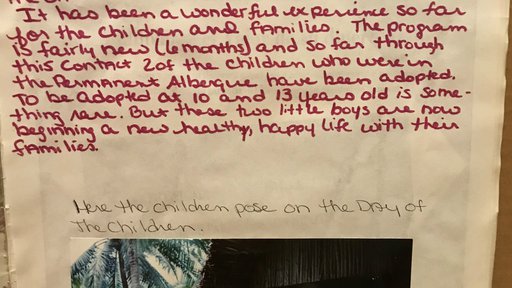 It has been a wonderful experience so far
for the children and families. The program
is fairly new (6 months) and so far through
this contact 2 of the children who were in
the Permanent Albergue have been adopted.
To be adopted at 10 and 13 years old is some-
thing rare. But these two little boys are now
beginning a new healthy, happy life with their
families.
Here the children pose on the Day of
The Children.